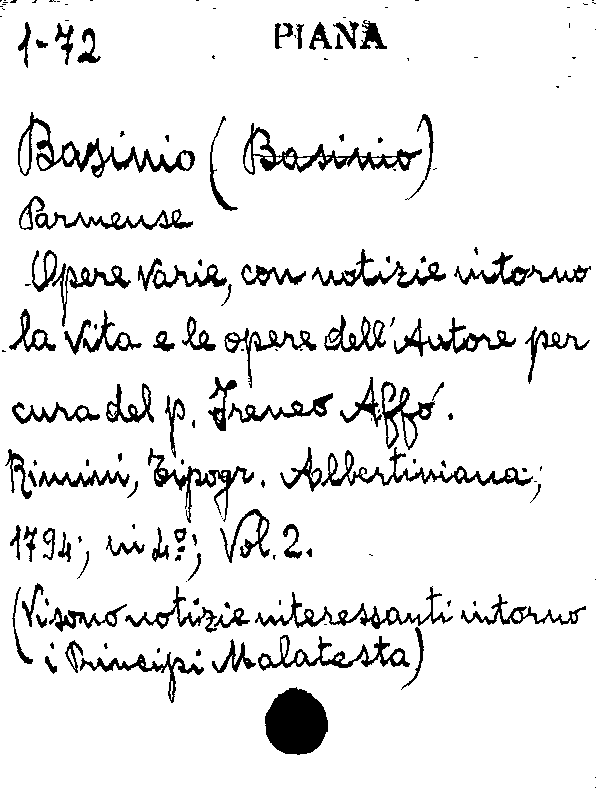 1-72 PIANA
Basinio (Basinio)
Parmense
Opere varie, con notizie intorno
la vita e le opere dell'Autore per
cura del p. Ireneo Affó.
Rimini, Tipogr. Albertiniana;
1794; in 4º; Vol. 2.
(Vi sono notizie interessanti intorno
i Principi Malatesta)